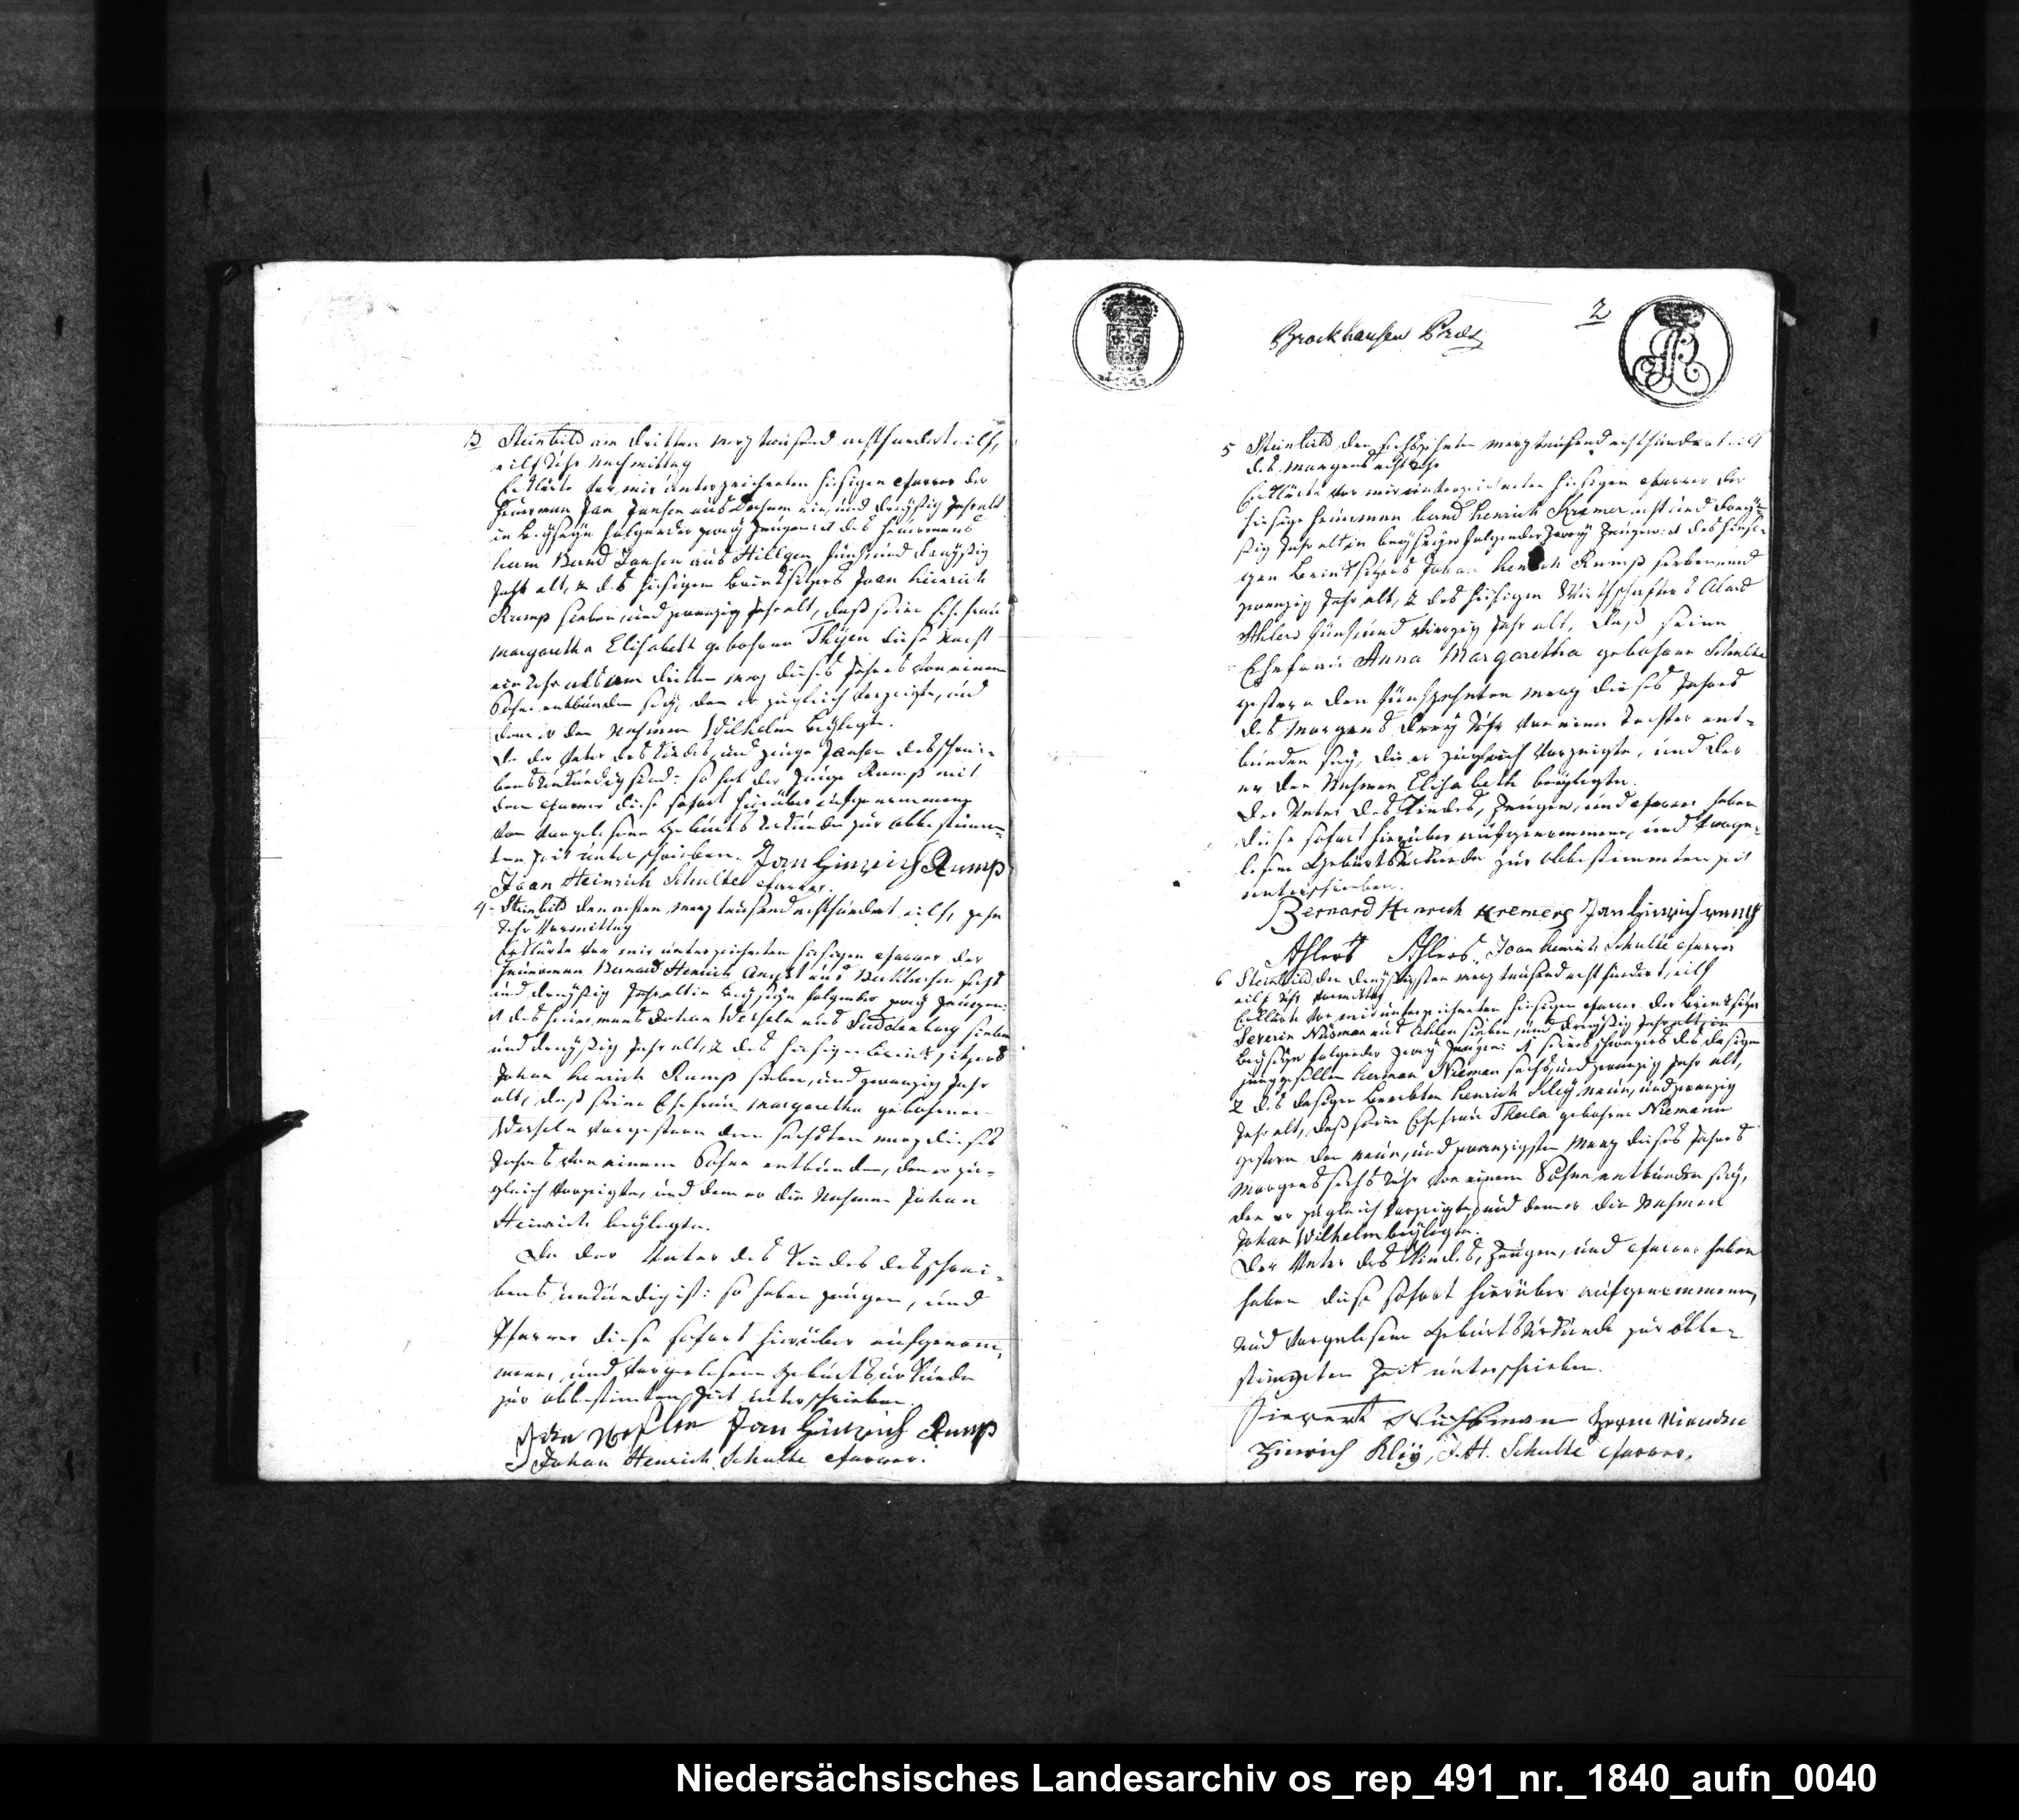 3 Steinbild am dritten merz tausend achthundert eilf,
eilf Uhr nachmittag
Erklärte vor mir unterzeichneten hiesigen Pfarrer der
Heuerman Jan Jansen aus Dechum ein und dreyßig Jahr alt
in Beyseyn folgender zwey Zeugen: 1t des Heuermans
Harm Bernd Jansen aus Hilligen fünf und dreyßig
Jahr alt, 2 des hiesigen Brinksitzers Joan Hinrich
Rump sieben und zwanzig Jahr alt, daß seine Ehefrau
Margaretha Elisabeth gebohrne Thÿen diese Nacht
ein Uhr als am dritten merz dieses Jahres von einem
Sohn entbunden sey, den er zugleich vorzeigte, und
dem er den Nahmen Wilhelm beylegte.
Da der Vater des Kindes, und Zeuge Jansen des schrei-
bens unkundig sind: so hat der Zeuge Rump mit
dem Pfarrer diese sofort hierüber aufgenommene
vorgelesene Geburts Urkunde zur obbestimm-
ten Zeit unterschrieben. Jan Hinrich Rump
Joan Heinrich Schulte Pfarrer.
4 Steinbild den achten merz tausend achthundert eilf, zehn
Uhr Vormittag
Erklärte vor mir unterzeichneten hiesigen Pfarrer der
Heuerman Bernard Henrich aus sechs
und dreyßig Jahr alt in Beyseyn folgender zwey Zeugen:
1t des Heuermans Johan Wesseln aus Suddenberg sieben
und dreyßig Jahr alt, 2 des hiesigen Brinksitzers
Johan Henrich Rump sieben, und zwanzig Jahr
alt, daß seine Ehefrau Margaretha gebohrne
Wesseln vorgestern den sechsten merz dieses
Jahres von einem Sohne entbunden, den er zu-
gleich vorzeigte, und dem er die Nahmen Johan
Heinrich beylegte.
Da der Vater des Kindes des schrei-
bens unkundig ist: so haben Zeugen, und
Pfarrer diese sofort hierüber aufgenom-
mene, und vorgelesene Geburtsurkunde
zur obbestimten Zeit unterschrieben.
Jan Hinrich Rump
Johan Henrich Schulte Pfarrer.
Brockhausen Præs
2
5 Steinbild den sechszehnten merz tausend achthundert eilf
des Morgens acht Uhr
Erklärte vor mir unterzeichneten hiesigen Pfarrer der
hiesige Heuerman Bernd Henrich Kremer acht und drey-
ßig Jahr alt in Beyseyn folgender zwey Zeugen: 1t des hiesi-
gen Brinksitzers Johan Henrich Rump sieben, und
zwanzig Jahr alt, 2 des hiesigen Wirthschafters Alerd
Ahlers fünf und vierzig Jahr alt, daß seine
Ehefrau Anna Margaretha gebohrne Schulte
gestern den fünfzehnten merz dieses Jahres
des Morgens drey Uhr von einer Tochter ent-
bunden sey, die er zugleich vorzeigte, und der
er den Nahmen Elisabeth beylegte.
Der Vater des Kindes, Zeugen, und Pfarrer haben
diese sofort hierüber aufgenommene, und vorge-
lesene Geburtsurkunde zur obbestimmten Zeit
unterschrieben.
Bernard Hinrich Kremers Jan Hinrich Rump
Ahlert Ahlers. Joan Henrich Schulte Pfarrer
6 Steinbild den dreyßigsten merz tausend acht hundert, eilf
eilf Uhr Vormittag
Erklärte vor mir unterzeichneten hiesigen Pfarrer der Brinksitzer
Severin Nüsman aus Ahlen sieben, und dreyßig Jahr alt, in
Beyseyn folgender zwey Zeugen: 1t seines Schwagers des dasigen
Junggesellen Herman Nieman sechs, und zwanzig Jahr alt,
2 des dasigen Beerbten Henrich Kleÿ neun, und zwanzig
Jahr alt, daß seine Ehefrau Thecla gebohrne Niemann
gestern den neun, und zwanzigsten Merz dieses Jahres
Morgens sechs Uhr von einem Sohne entbunden sey,
den er zugleich vorzeigte, und dem er die Nahmen
Johan Wilhelm beylegte.
Der Vater des Kindes, Zeugen, und Pfarrer haben
haben diese sofort hierüber aufgenommene,
und vorgelesene Geburtsurkunde zur obbe-
stimmten Zeit unterschrieben.
Sievert Herm Niemann
Hinrich Kleÿ, J. H. Schulte Pfarrer.
Niedersächsisches Landesarchiv os_rep_491_nr._1840_aufn_0040